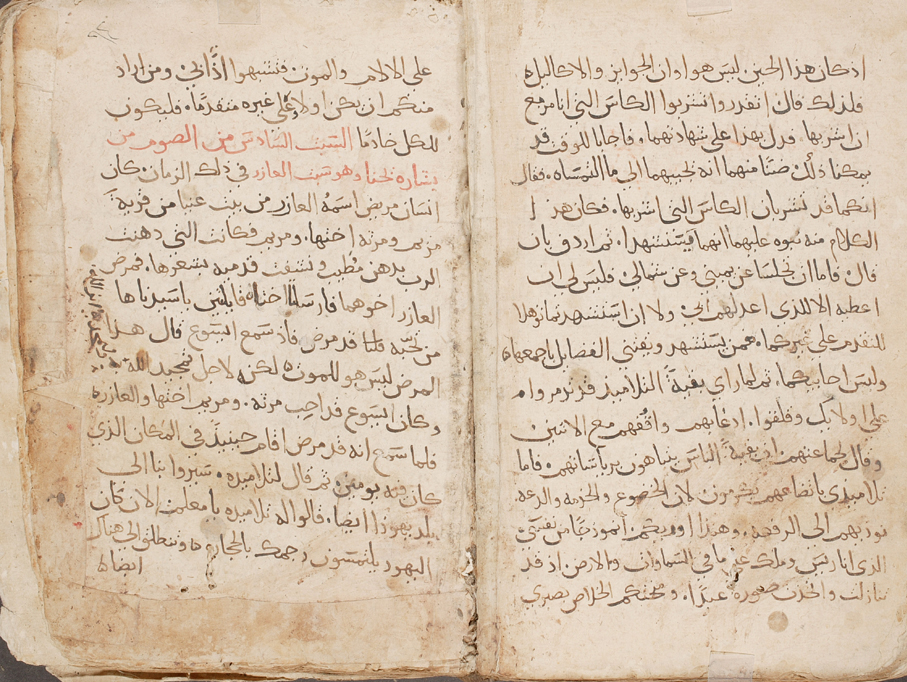 اذ كان هذا الحين ليس هو اوان الجوايز والاكاليل ه
فلذلك قال اتقدروا تشربوا الكاس التي انا مزمع
ان اشربها. فدل بهذا على شهادتهما. فاجابا للوقت قد
يمكنا ذلك ظنًا منهما انه يجيبهما الى ما التمساه. فقال
انكما قد تشربان الكاس التي اشربها. فكان هذ ا
الكلام منه نبوه عليهما انهما فيستشهدا. ثم اردف بان
قال فاما ان تجلسا عن يميني وعن شمالي فليس لي ان
اعطيه الا للذي اعد لهم ابي ولا ان استشهدتما توهلا
للتقدم على غيركما. فمن يستشهد ويقتني الفضايل باجمعها ه
وليس احابيكما. ثم لما راي بقية التلاميذ قد تذمروا م
على اولايك وقلقوا. ادعاهم واتقفهم مع الاثنين
وقال لجماعتهم ان بقية الناس يتباهون برياساتهم. فاما
تلاميذي باتضاعهم يكرمون لان الخضوع والخدمه والدعه
تودهم الى الرفعه. وهذا اوريكم انموذجًا من نفسي
الذي انا ريس وملك على ما في السماوات والارض اذ قد
تنازلت واخذت صورة عبدًا. ومنحتكم الخلاص بصبري
على الالام والموت فتشبهوا اذًا بي ومن اراد
منكم ان يكن اولا على غيره متقدمًا. فليكون
للكل خادمًا السبت السادس من الصوم من
بشاره يحنا وهو سبت العازر في ذلك الزمان كان
انسان مريض اسمه العازر من بيت عنيا من قرية
مريم ومرته اختها. ومريم فكانت التي دهنت
الرب بدهن مطيب ونشفت قدميه بشعرها. فمرض
العازر اخوهما فارسلتا اختاه قايلتين يا سيد ها
من تحبه فلنا قد مرض فاذ سمع ايسوع قال هذا
المرض ليس هو للموت ه لكن لاجل تمجيد الله
وكان ايسوع قد احب مرته. ومريم اختها والعازر ه
فلما سمع انه قد مرض اقام حينيذ في المكان الذي
كان فيه يومين ثم قال لتلاميذه. سيروا بنا الى
بلد يهوذا ايضا. قالوا له تلاميذه يا معلمنا الان كان
اليهود يلتمسون رجمك بالحجاره ه وتنطلق الى هناك
ايضا ه